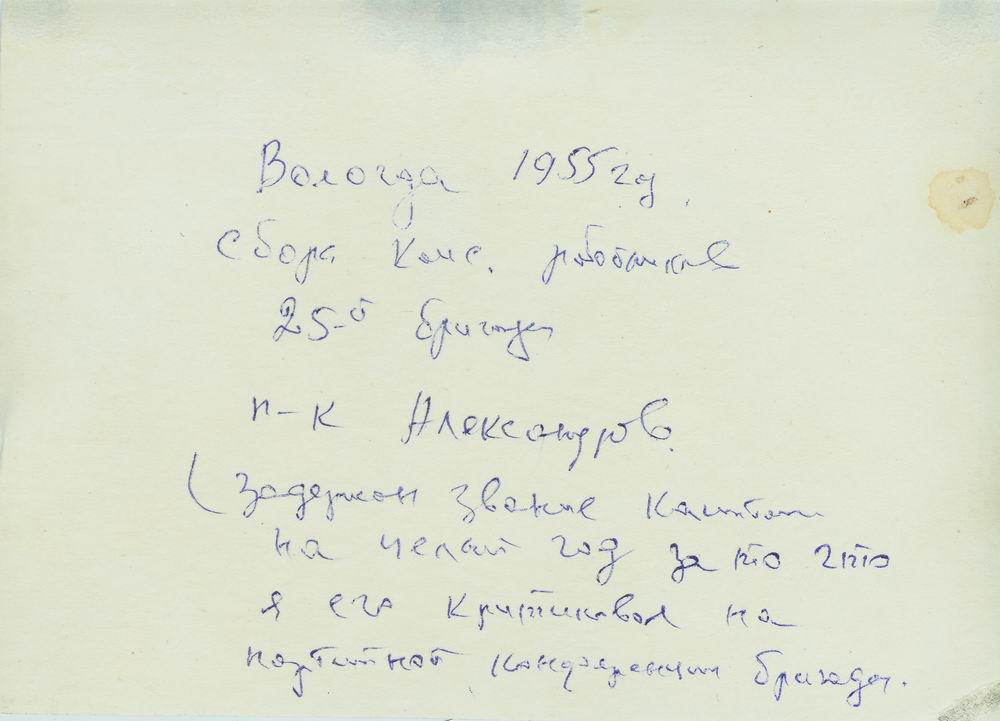 Вологда 1955 год.
Сборы Комс. работников
25-й бригады
п-к Александров.
(Задержал звание Капитан
на целый год за то что
я его критиковал на
партийной конференции бригады.